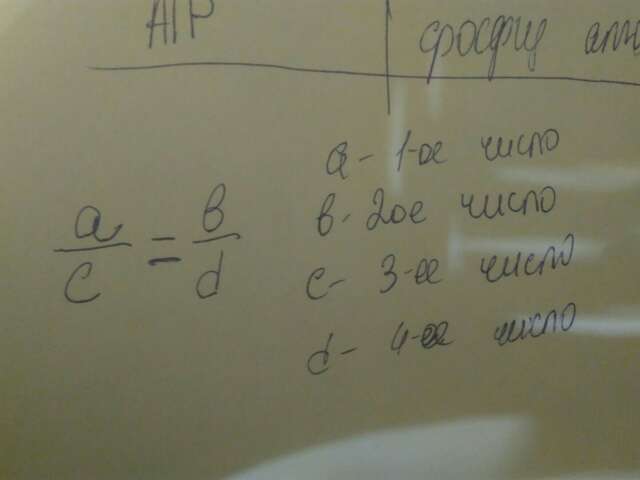 АТР
a/c = b/d
a - 1-ое число
b - 2ое число
c - 3-ее число
d - 4-ое число